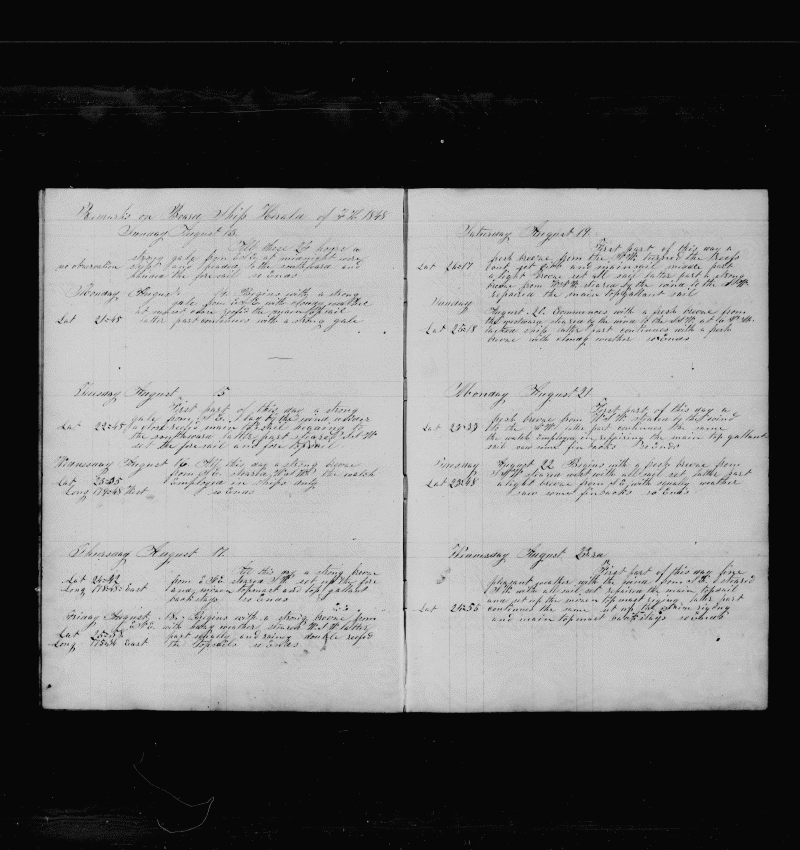 Remarks on Board Ship Herald of F H 1848
Sunday August 13
All these 24 hours a
strong gale from ESE at midnight wore
no observation ship and headed to the southward and
furled the fore sail so Ends
Monday August 14 Begins with a strong
gale from ESE with cloudy weather
at reefed the main top sail
Lat 21-45 latter part continues with a strong gale
Tuesday August 15
First part of this day a strong
gale from S E lay by the wind under
Lat 22-45 close reefed main top sail heading to
the southward latter part steared S S W
set the fore sail and fore top sail
Wednesday August 16 All this day a strong breeze
from steared W S W the watch
Lat 23-35 Employed in ships duty
Long 179-45 West so Ends
Thursday August 17
All this day a strong breeze
Lat 24-42 from E S E steared S W set up the fore
Long 178-57 East and main topmast and top gallant
backstays so Ends
Friday August 18 Begins with a strong breeze from
with weather steared W S W latter
Lat 25-58 part squaly and rainy double reefed
Long 175-34 East the topsails so Ends
Saturday August 19
First part of this day a
fresh breeze from the turned the Reefs
Lat 24-17 out set jib and main sail middle part
a light breeze set all sail latter part a strong
breeze from steared by the wind to the
repaired the main topgallant sail
Sunday August 20 Commences with a fresh breeze from
the westward steared by the wind to the
Lat 25-18 tacked ship latter part continues with a fresh
breeze with cloudy weather so Ends
Monday August 21
First part of this day a
fresh breeze from steared by the wind
Lat 23-39 to the latter part continues the same
the watch Employed in repairing the main top gallant
sail saw some finbacks So Ends
Tuesday August 22 Begins with a fresh breeze from
steared west with all sail set latter part
Lat 23-48 a light breeze from S E with squaly weather
saw some finbacks so Ends
Wednesday August 23rd
First part of this day fine
pleasant weather with the wind from steared
with all sail set repaired the main topsail
and set up the main topmast riging latter part
Lat 24-56 continued the same set up the main riging
and main top mast backstays so Ends